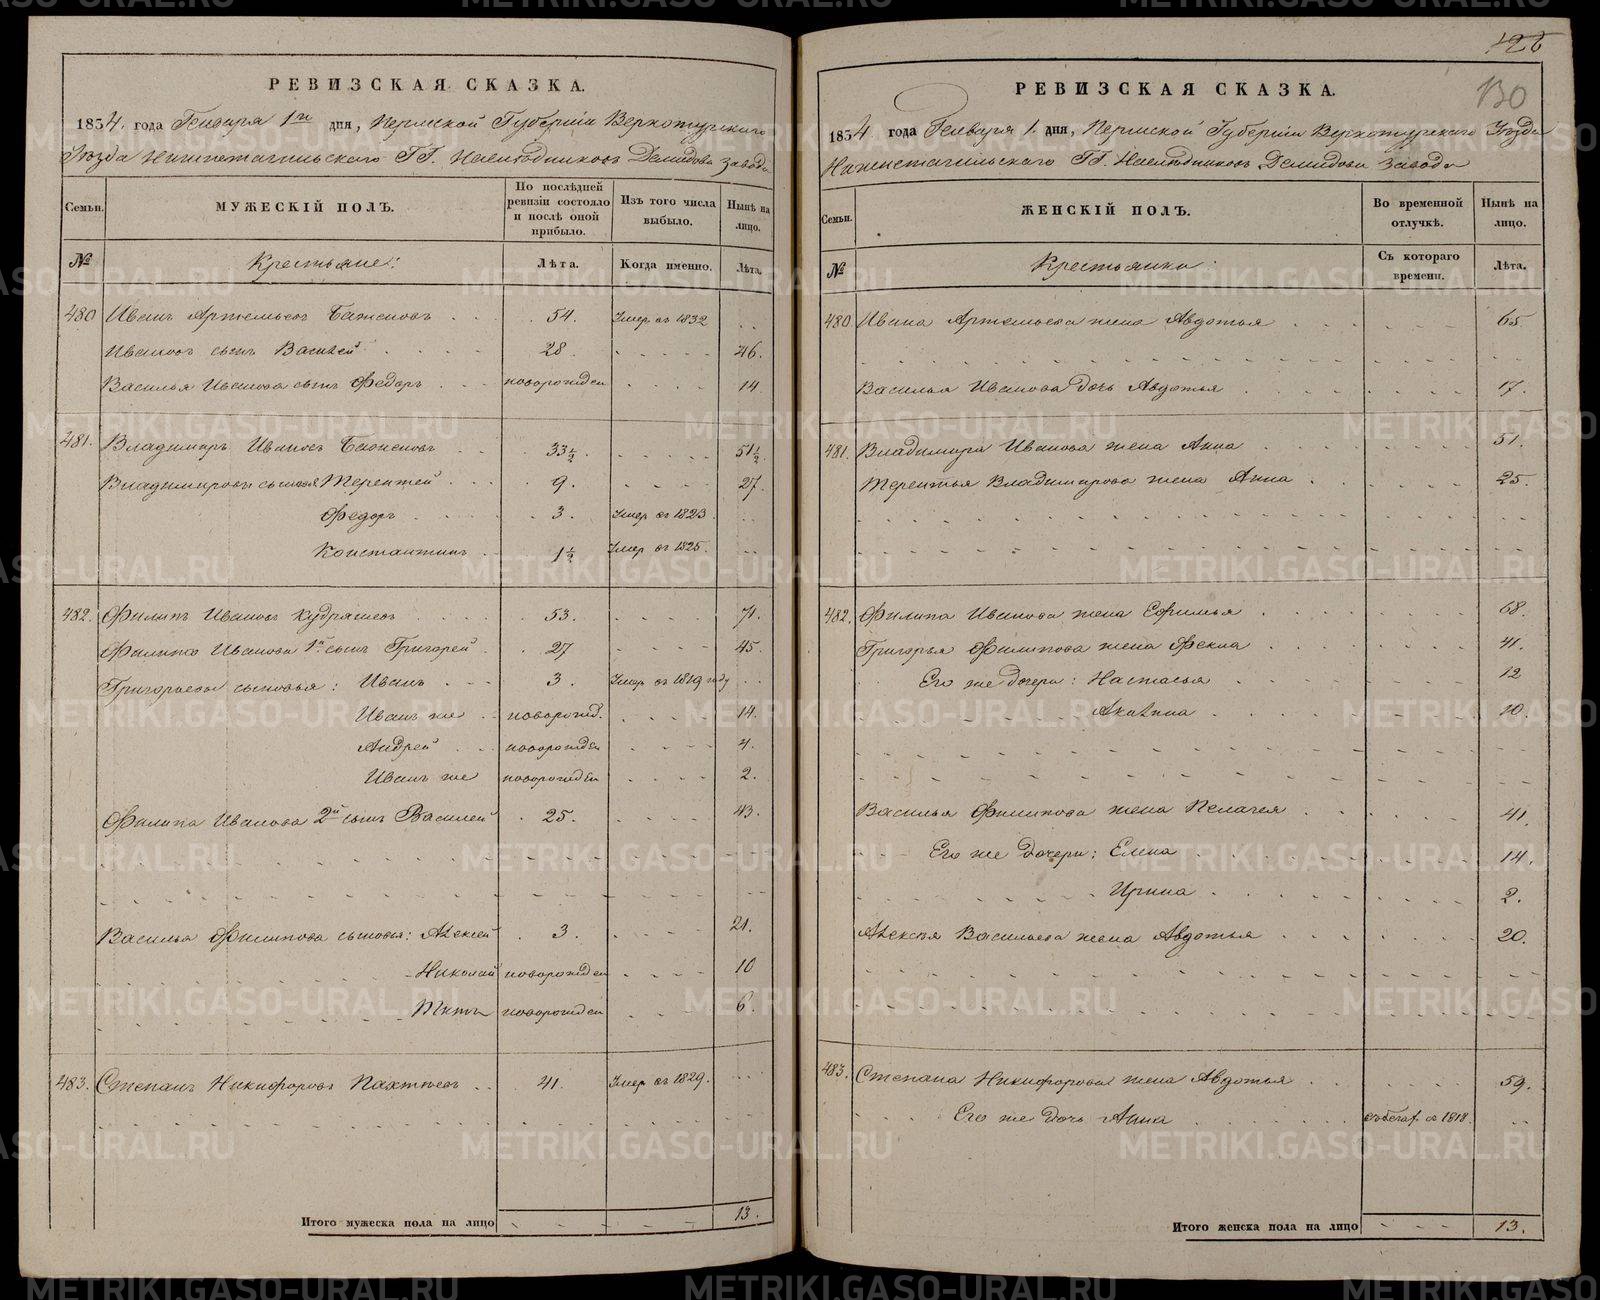 РЕВИЗСКАЯ СКАЗКА.
1834. года Генваря 1го дня, Пермской Губернiи Верхотурскаго
Уѣзда Нижнетагильскаго ГГ. Наслѣдниковъ Демидова завода
Семьи.
МУЖЕСКIЙ ПОЛЪ.
По послѣдней ревизiи состояло и послѣ оной прибыло.
Изъ того числа выбыло.
Нынѣ на лицо.
№
Крестьяне:
Лѣта.
Когда именно.
Лѣта.
480 Иванъ Артемьевъ Баженовъ 54. Умер въ 1832
Ивановъ сынъ Василей 28 46.
Василья Иванова сынъ Федоръ новорожден 14
481. Владимиръ Ивановъ Баженовъ 33½ 51½
Владимировы сыновья Терентей 9. 27.
Федоръ 3. Умер въ 1823.
Константинъ 1½ Умер въ 1825.
482. Филипъ Ивановъ Кудряшев 53. 71.
Филипа Иванова 1й сынъ Григорей 27 45.
Григорьевы сыновья: Иванъ 3. Умер въ 1819 году
Иванъ же новорожд. 14.
Андрей новорожден 4.
Иванъ же новорожден 2.
Филипа Иванова 2й сынъ Василей 25. 43.
Василья Филипова сыновья: Алексей 3. 21.
Николай новорожден 10
Титъ новорожден 6.
483. Степанъ Никифоровъ Пахтѣевъ 41. Умер въ 1829.
Итого мужеска пола на лицо 13.
126
130
РЕВИЗСКАЯ СКАЗКА.
1834 года Генваря 1. дня, Пермской Губернiи Верхотурскаго Уѣзда
Нижнетагильскаго ГГ. Наслѣдниковъ Демидова завода
Семьи.
ЖЕНСКIЙ ПОЛЪ.
Во временной отлучкѣ.
Нынѣ на лицо.
№
Крестьянки:
Съ котораго времени.
Лѣта.
480. Ивана Артемьева жена Авдотья 65.
Василья Иванова дочь Авдотья 17.
481. Владимира Иванова жена Анна 51.
Терентья Владимирова жена Анна 25.
482. Филипа Иванова жена Ефимья 68.
Григорья Филипова жена Фекла 41.
Его же дочери: Настасья 12
Акилина 10.
Василья Филипова жена Пелагея 41.
Его же дочери: Елена 14.
Ирина 2.
Алексѣя Васильева жена Авдотья 20.
483. Степана Никифорова жена Авдотья 59.
Его же дочь Анна въ бегах с 1818.
Итого женска пола на лицо 13.
METRIKI.GASO-URAL.RU